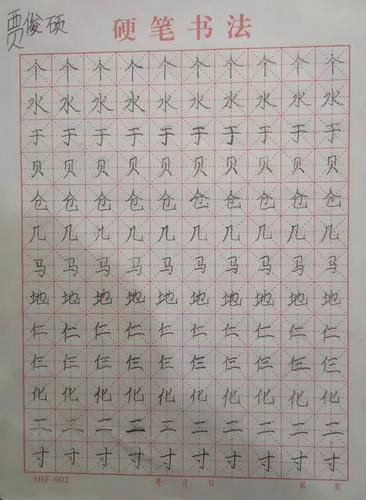 贾俊硕
硬笔书法
个个个个个个个个个个
水水水水水水水水水水
于于于于于于于于于于
贝贝贝贝贝贝贝贝贝贝
仓仓仓仓仓仓仓仓仓仓
几几几几几几几几几几
马马马马马马马马马马
地地地地地地地地地地
仁仁仁仁仁仁仁仁仁仁
仨仨仨仨仨仨仨仨仨仨
化化化化化化化化化化
二二二二二二二二二二
寸寸寸寸寸寸寸寸寸寸
9HF-002 年 月 日 第 页